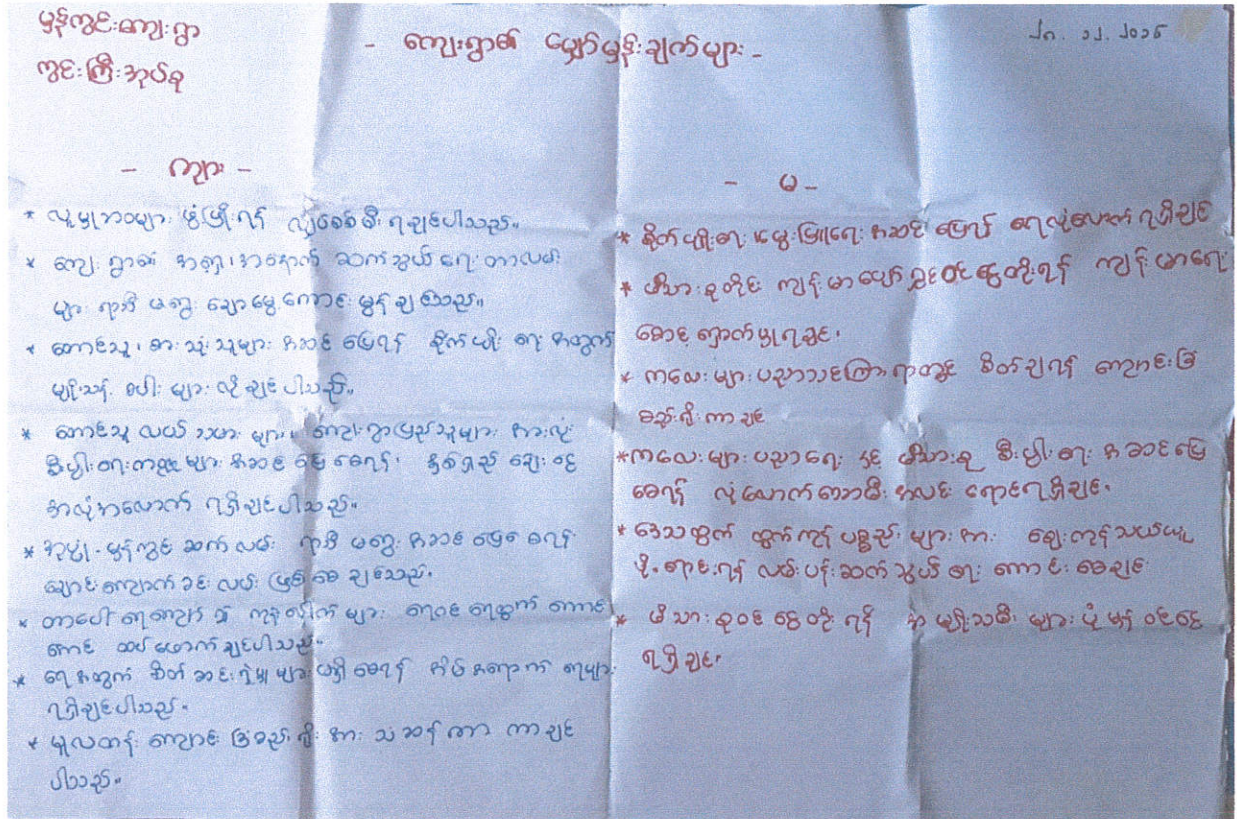 မွန်ကွင်းကျေးရွာ
ကွင်းကြီးအုပ်စု
- ကျေးရွာ၏ မျှော်မှန်းချက်များ -
- ကျား -
* လူမှုဘဝများ ဖွံ့ဖြိုးရန် လျှပ်စစ်မီး ရချင်ပါသည်။
* ကျေးရွာ၏ အရှေ့၊ အနောက် ဆက်သွယ်ရေး တာလမ်း
များ ရာသီမရွေး ချောမွေ့ကောင်းမွန်ချင်သည်။
* တောင်သူ၊ စားသုံးသူများ အဆင်ပြေရန် စိုက်ပျိုးရေး အတွက်
မျိုးသန့် စပါးများ လိုချင်ပါသည်။
* တောင်သူ လယ်သမားများ ကျေးရွာပြည်သူများ အားလုံး
စီးပွါးရေးကဏ္ဍများ အဆင်ပြေစေရန် နှစ်ရှည်ချေးငွေ
အလုံအလောက် ရရှိချင်ပါသည်။
မွန်ကွင်း ဆက်လမ်း ရာသီမရွေး အဆင်ပြေစေရန်
ချောင်းကျောက်ခင်းလမ်း ဖြစ်စေချင်သည်။
* တာပေါ် ရေကျော် ရေဝင်ရေထွက် ကောင်း
ကောင်း ထပ်ဖောက်ချင်ပါသည်။
* ရေအတွက် စိတ်ဆင်းရဲမှုများ မရှိစေရန် အိပ်အရောက် ရေများ
ရရှိချင်ပါသည်။
* မူလတန်းကျောင်း ခြံစည်းရိုးအား သံဆန်ကာ ကာချင်
ပါသည်။
- မ -
* စိုက်ပျိုးရေး မွေးမြူရေး အဆင်ပြေရန် ရေလုံလောက် ရရှိချင်
* မိသားစုတိုင်း ကျန်းမာပျော်ရွှင်ဝင်ငွေတိုးရန် ကျန်းမာရေး
စောင့်ရှောက်မှုရချင်
* ကလေးများ ပညာသင်ကြားရာတွင် စိတ်ချရန် ကျောင်းခြံ
စည်းရိုး ကာချင်
* ကလေးများ ပညာရေး နှင့် မိသားစု စီးပွါးရေး အဆင်ပြေ
စေရန် လုံလောက်သောမီး အလင်းရောင်ရရှိချင်
* ဒေသထွက် ထွက်ကုန်ပစ္စည်းများအား ဈေးကွန်သယ်ယူ
ပို့ရောင်းရန် လမ်းပန်းဆက်သွယ်ရေး ကောင်းစေချင်
* မိသားစုဝင်ငွေတိုးရန် အမျိုးသမီးများ ပုံမှန်ဝင်ငွေ
ရရှိချင်